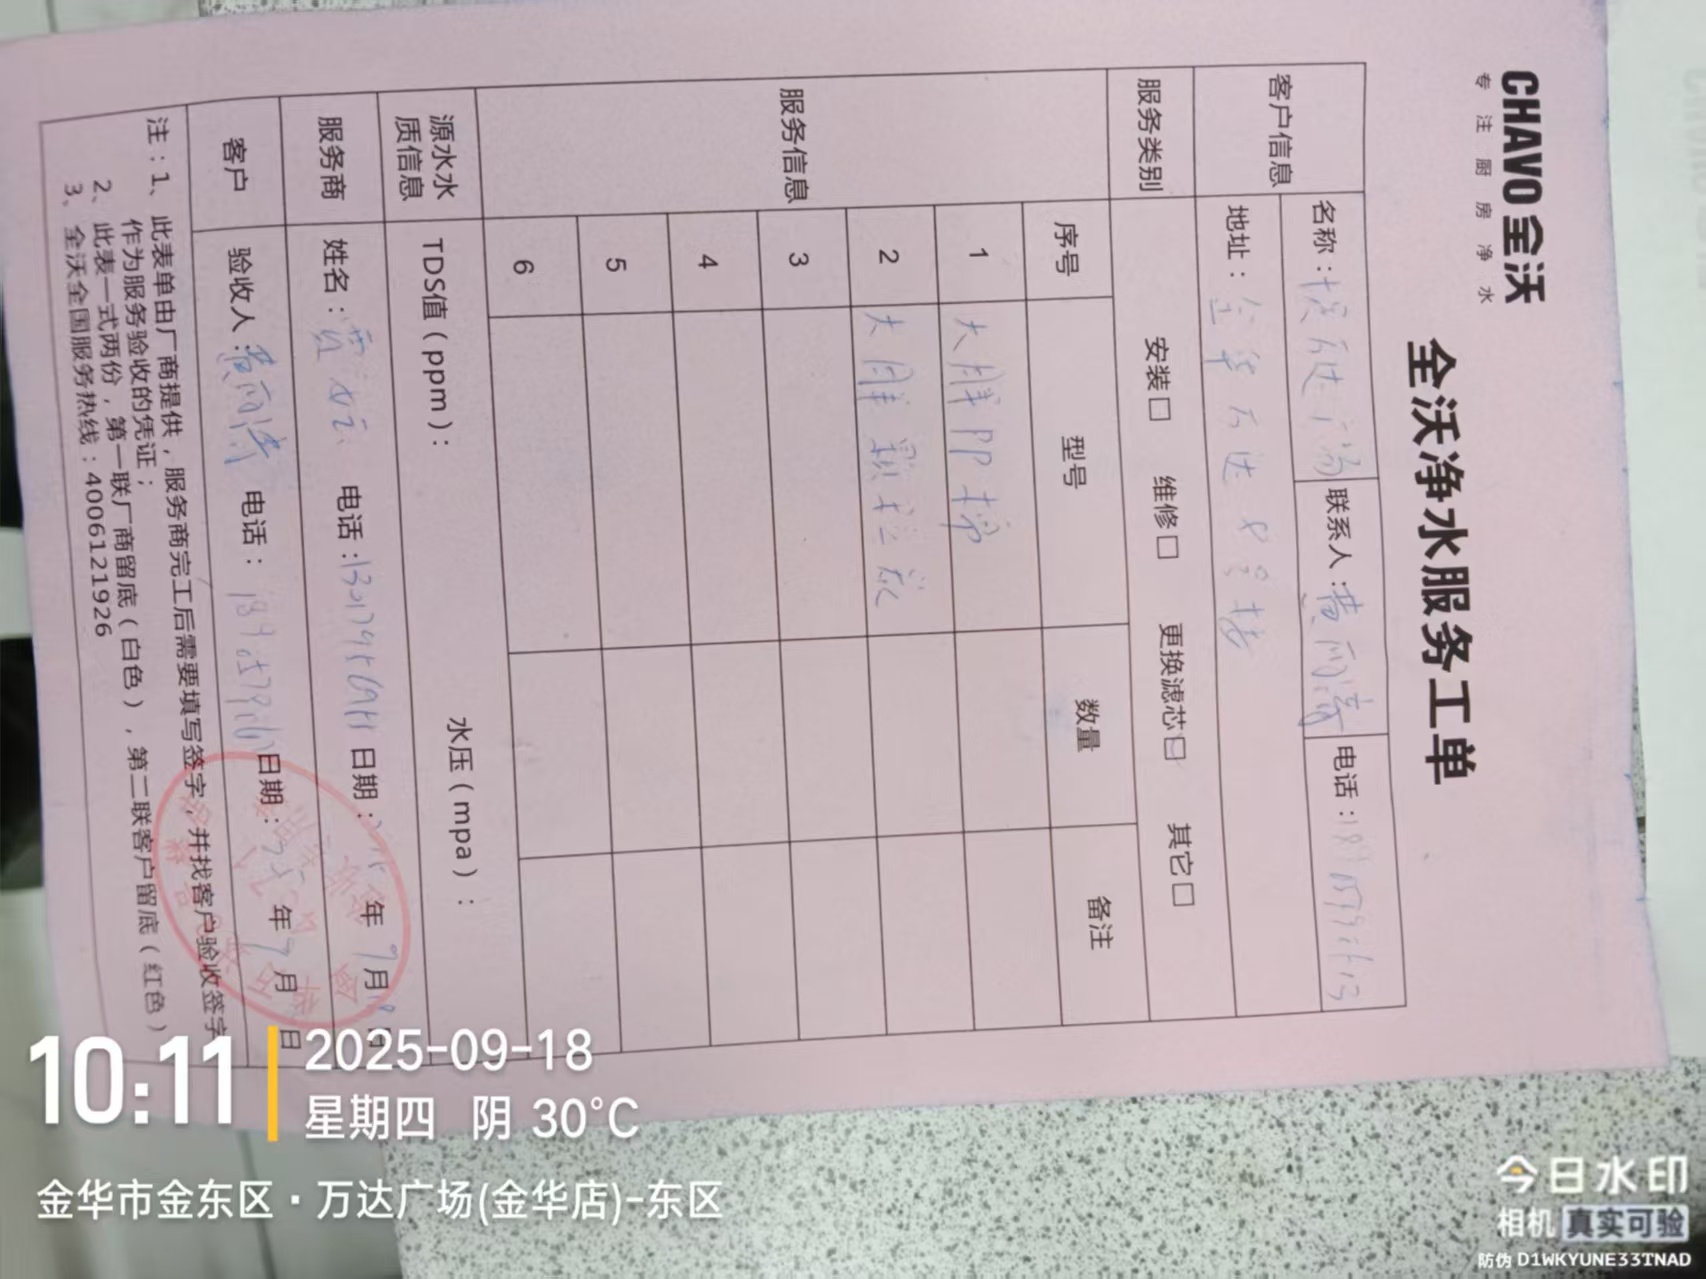 CHAVO 全沃
专注厨房净水
全沃净水服务工单
客户信息 名称： 万达广场 联系人：黄雨涛 电话：
地址：金华万达
服务类别 安装□ 维修□ 更换滤芯□ 其它□
服务信息 序号 型号 数量 备注
1 大胖PP棉
2 大胖颗粒炭
3
4
5
6
源水水质信息 TDS值（ppm）： 水压（mpa）：
服务商 姓名： 电话： 日期： 年9月 日
客户 验收人：黄雨涛 电话： 日期： 年9月 日
注：1、此表单由厂商提供，服务商完工后需要填写签字，并找客户验收签字
作为服务验收的凭证；
2、此表一式两份，第一联厂商留底（白色），第二联客户留底（红色）
3、全沃全国服务热线：4006121926
10:11
2025-09-18
星期四 阴 30°C
金华市金东区·万达广场(金华店)-东区
今日水印
相机 真实可验
防伪 D1WKYUNE33TNAD